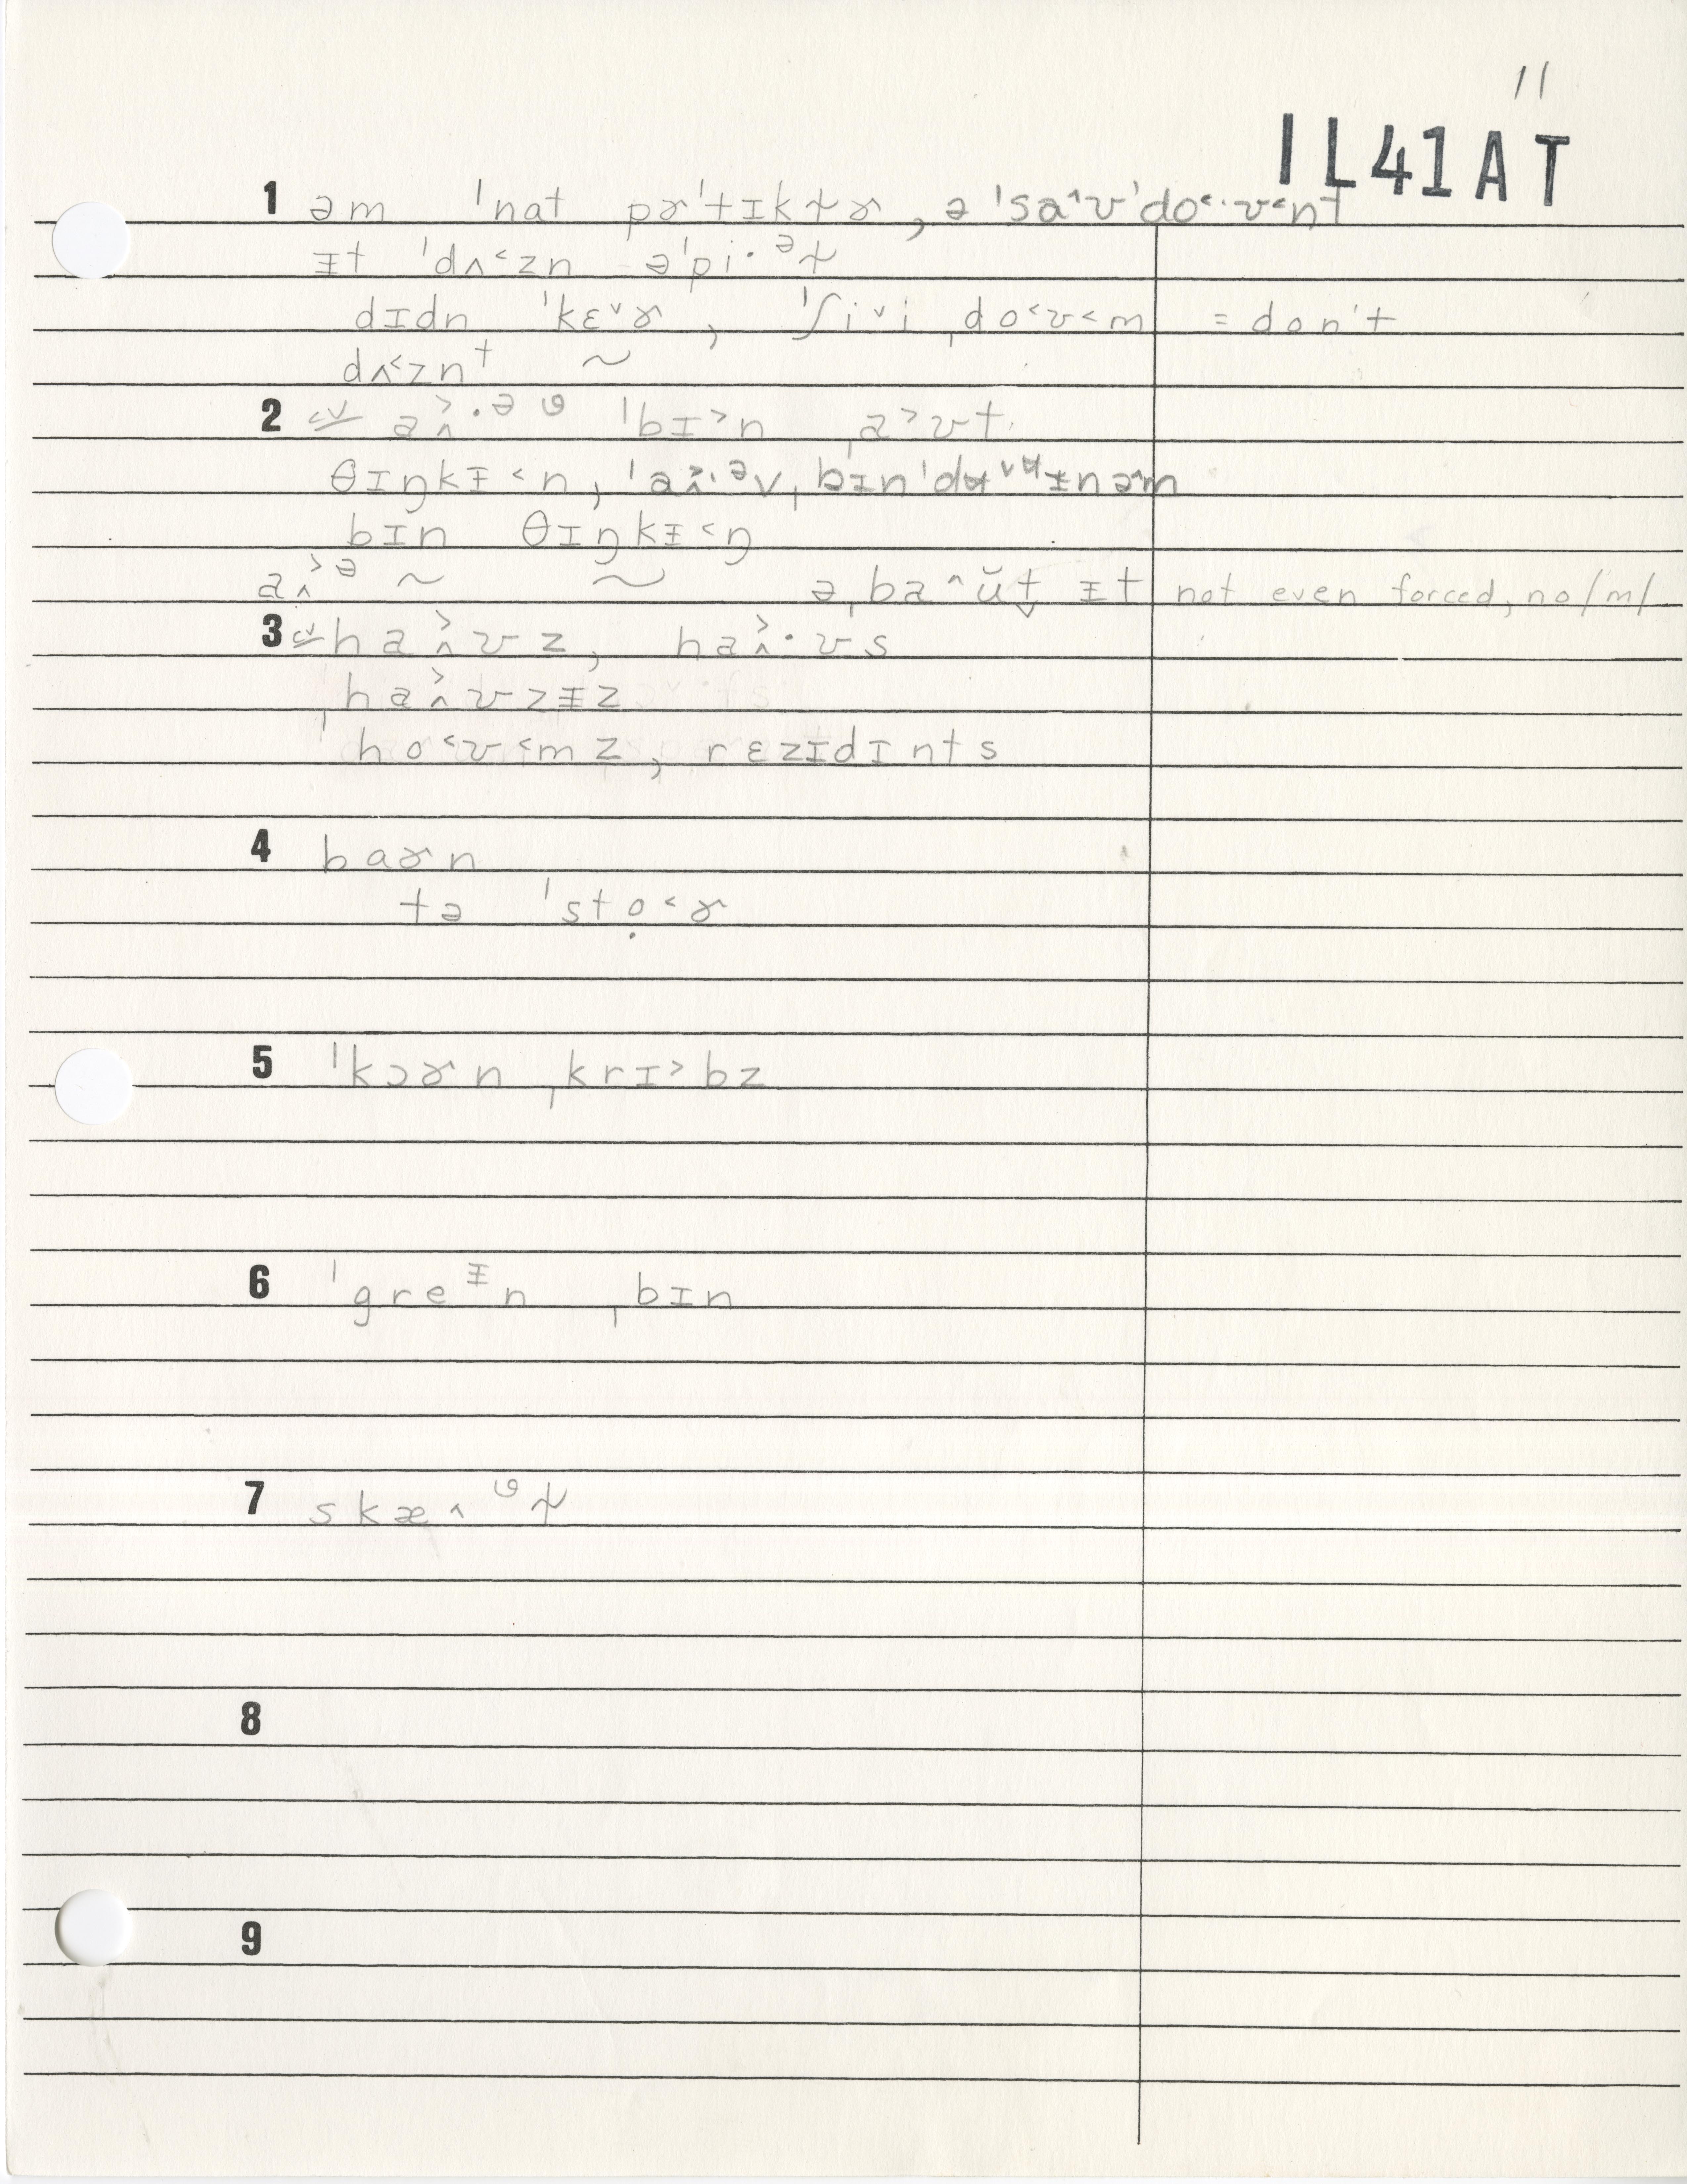 11
IL41AT
1 əm ˈnat pɚˈtɪkɫɚ, əˈsa^ʊˈdo˂·ʊ˂nt
ᵻt ˈdʌ˂zn əˈpi·ᵊɫ
dɪdn ˈkɛ˅ɚ, ˈʃi˅i ˌdo˂ʊ˂m = don't
dʌ˂znᵗ ~
2 cv aʌ˃·ᵊ ᶹ ˈbɪ˃n ˌa˃ʊt
θɪŋkᵻ˂n, ˈaʌ˃·ᵊv ˌbɪnˈdʉ˅ᶶᵻnəm
bɪn θɪŋkᵻ˂ŋ
aʌ˃ᵊ ~ ~ əˌba^ʊ̆t̬ ᵻt not even forced, no /m/
3 cv haʌ˃ʊz, haʌ˃·ʊs
ˌhaʌ˃ʊzᵻz
ˈho˂ʊ˂mz, rɛzɪdɪnts
4 baɚn
tə ˈstọ˂ɚ
5 ˈkɔɚn ˌkrɪ˃bz
6 ˈgreᵻn ˌbɪn
7 skæ^ᶹɫ
8
9